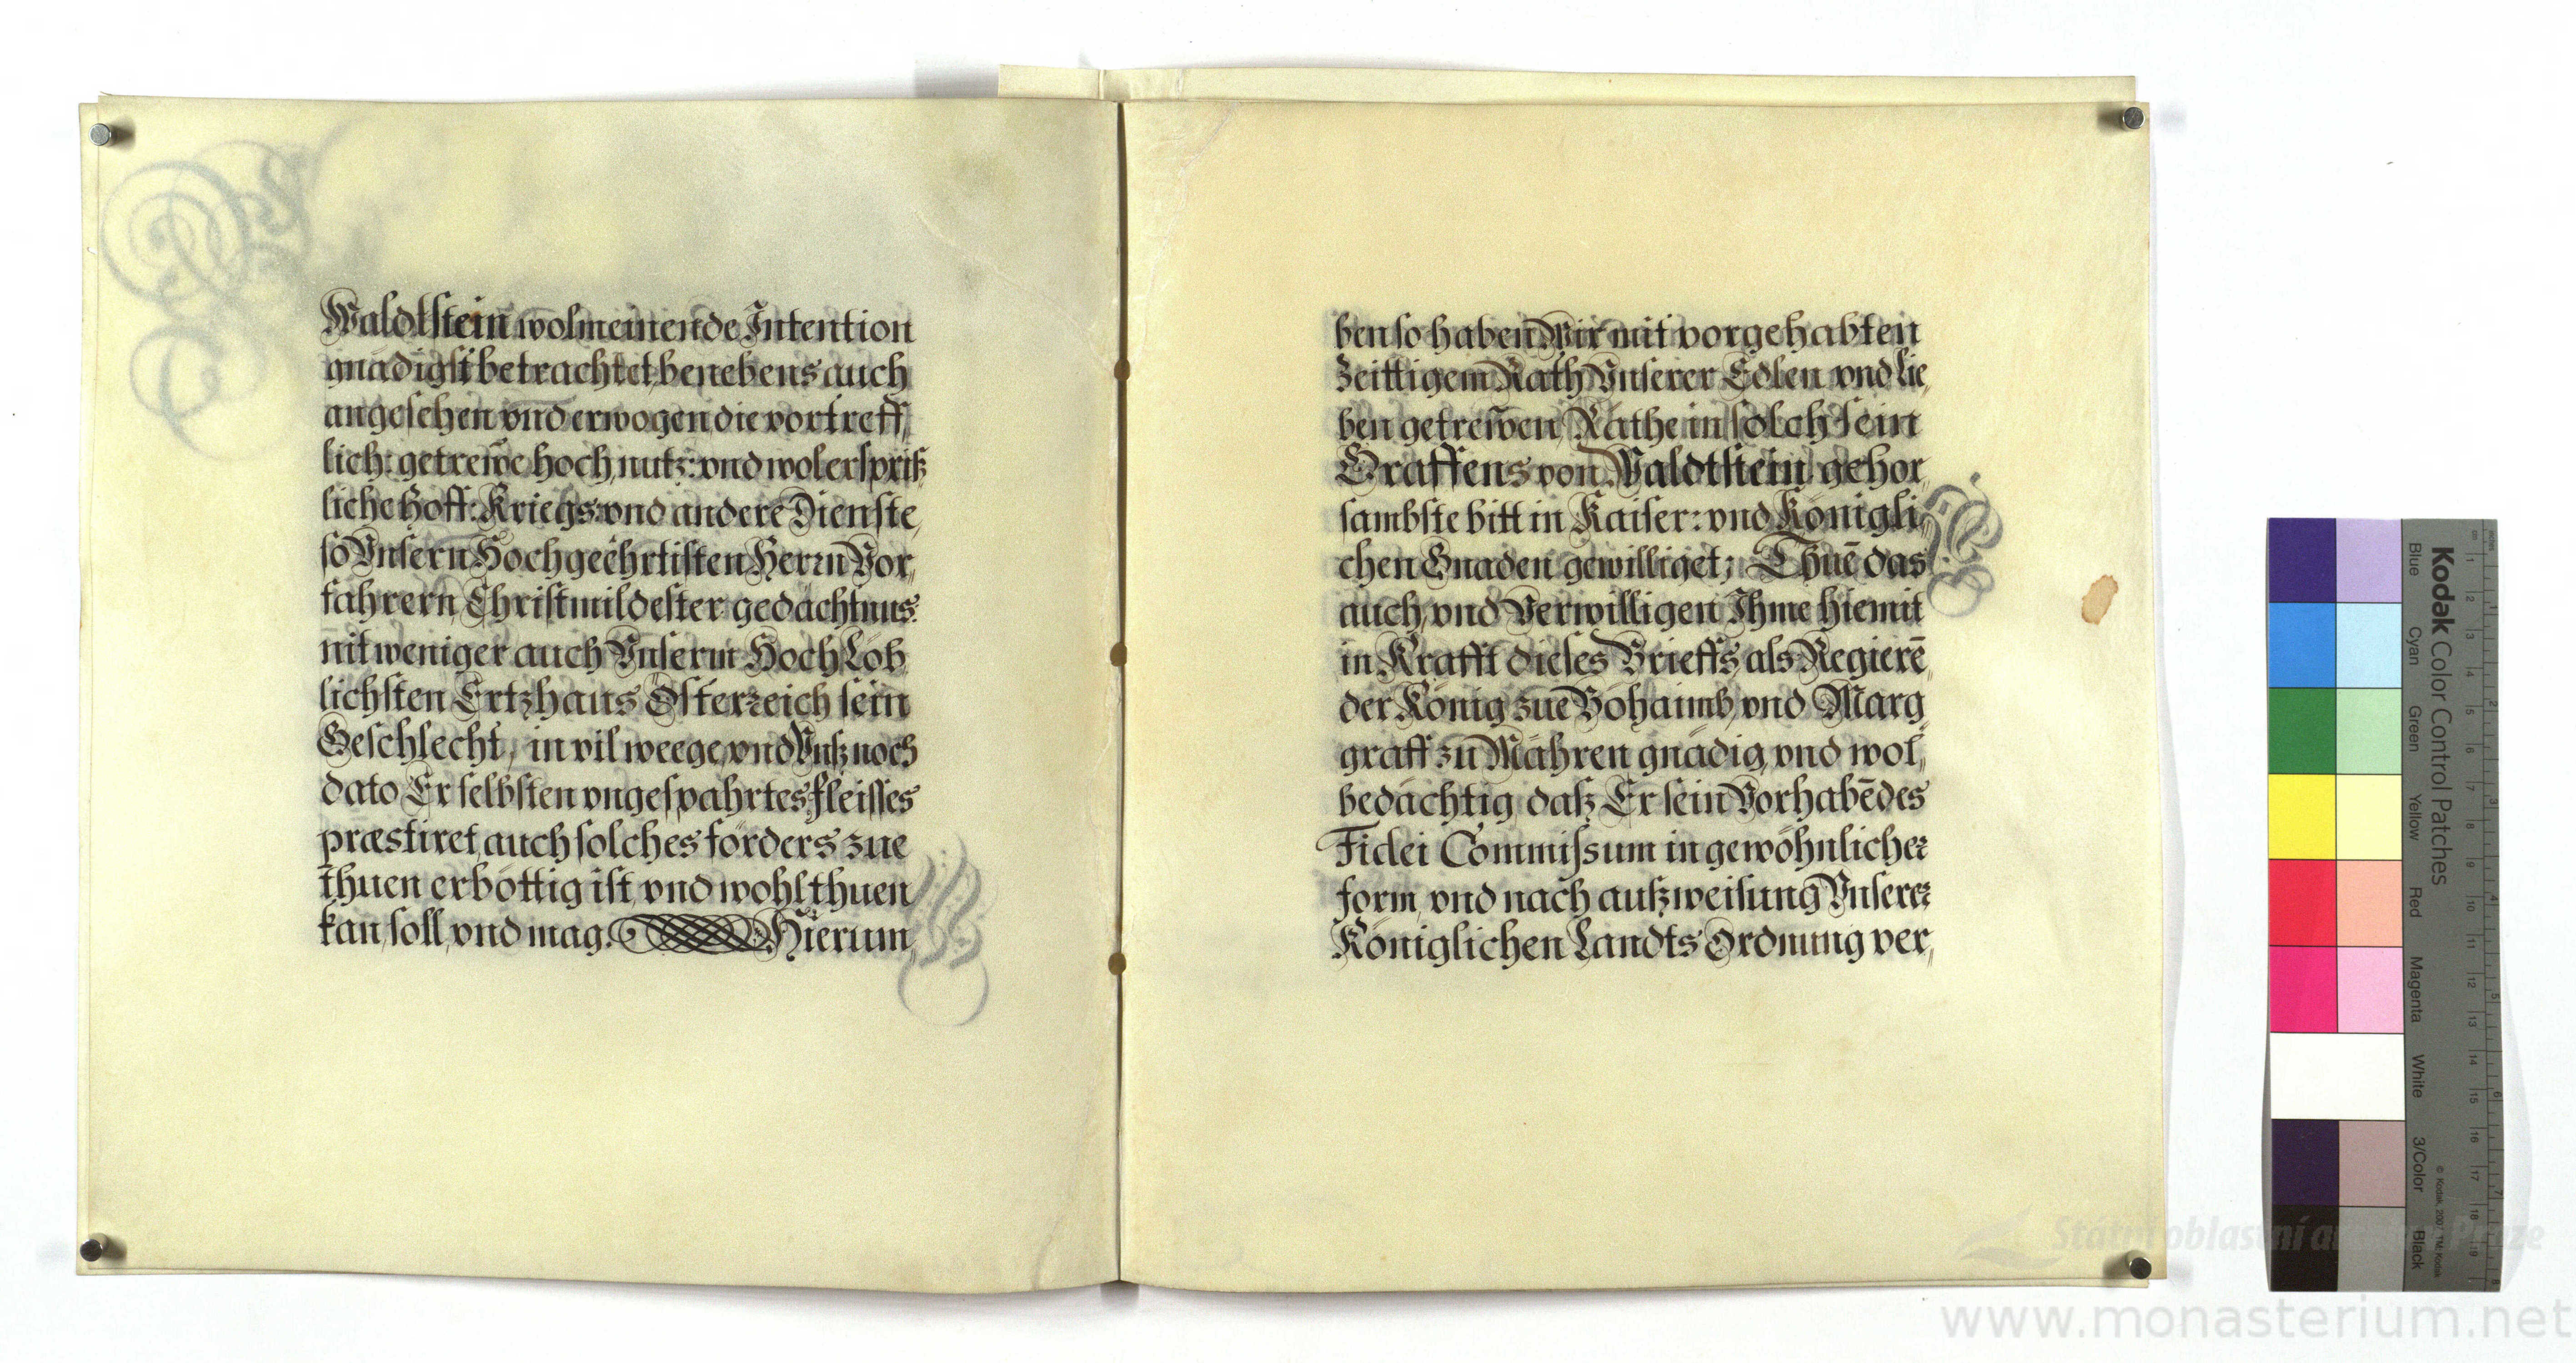 Waldtstein wolmeinende Intention
gnädigist betrachtet, benebens auch
angesehen vnd erwogen, die vortreff,
lich: getrewe hoch, nutz: vnd wolersprieß,
liche Hoff: Kriegs: vnd andere Dienste,
so Vnsern Hochgeehrtisten Herrn Vor,
fahrern, Christmildester gedächtnus:
nit weniger auch Vnserm HochLöb,
lichsten Ertzhaus Österreich sein
Geschlecht, in vil weege, vnd Vnß noch
dato Er selbsten vngespahrtes fleisses
præstiret, auch solches förders zue
thuen erböttig ist, vnd wohl thuen
kan, soll, vnd mag. Hierum,
ben so haben Wir mit vorgehabten
Zeittigem Rath Vnserer Edlen vnd lie,
ben getrewen, Räthe in solch sein
Graffens von Waldtstein gehor,
sambste bitt in Kaiser: vnd Königli,
chen Gnaden gewilliget; Thuē das
auch, vnd Verwilligen Ihme hiemit
in Krafft dieses Brieffs, als Regierē,
der König zue Böhaimb, vnd Marg,
graff zu Mähren gnädig, vnd wol,
bedächtig, daß Er sein Vorhabēdes
Fidei Commissum in gewöhnlicher
form, vnd nach außweisung Vnserer
Königlichen Landts Ordnung ver,
Kodak Color Control Patches
Blue Cyan Green Yellow Red Magenta White 3/Color Black
© Kodak, 2007 TM: Kodak
Státní oblastní archiv v Praze
www.monasterium.net